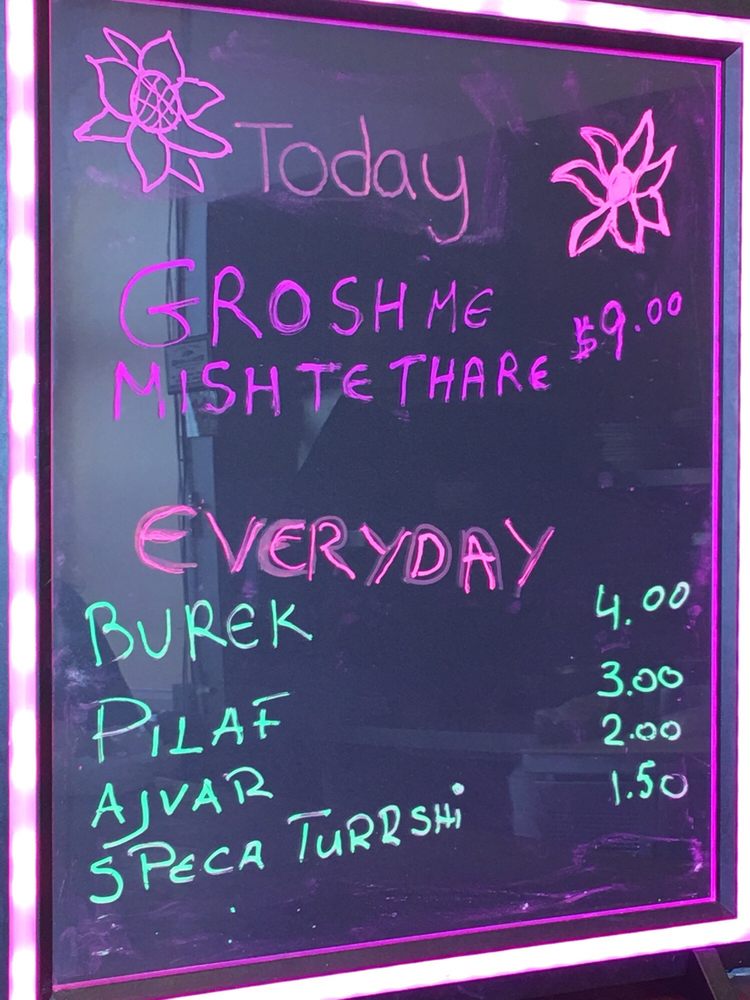 Today
GROSH ME
MISH TE THARE $9.00
EVERYDAY
BUREK 4.00
PILAF 3.00
AJVAR 2.00
SPECA TURRSHi 1.50